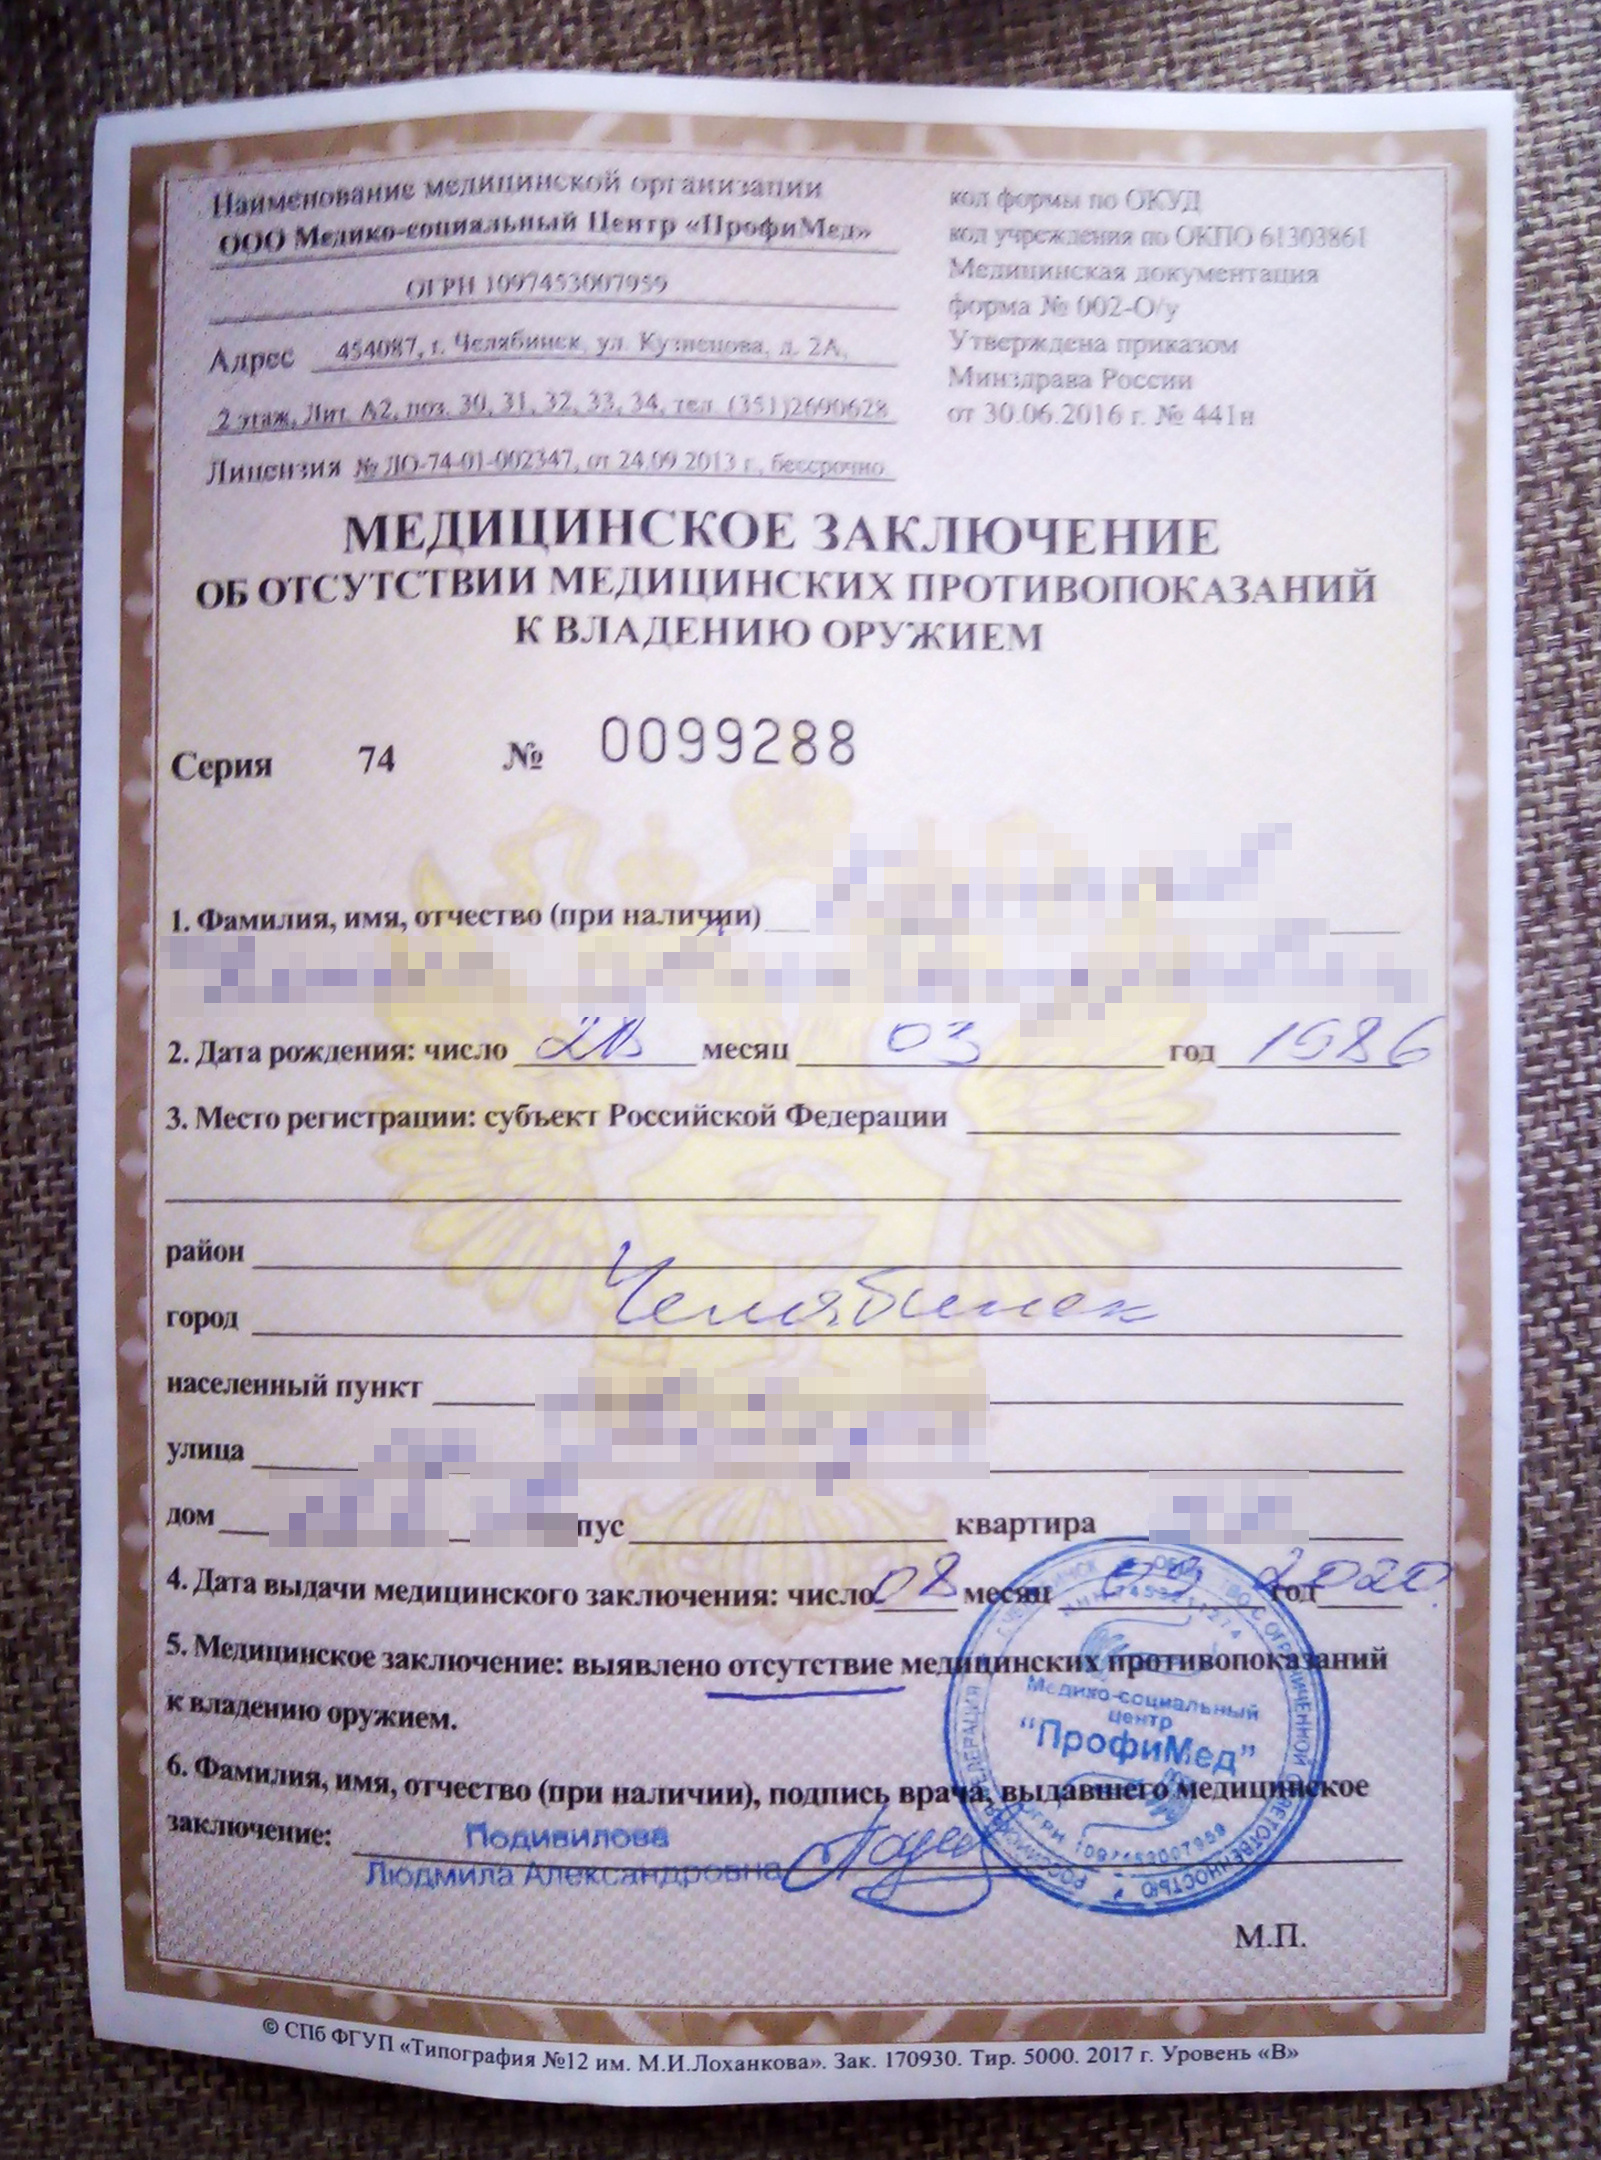 Наименование медицинской организации
ООО Медико-социальный Центр «ПрофиМед»
ОГРН 1097453007959
Адрес 454087, г. Челябинск, ул. Кузнецова, д. 2А,
2 этаж, Лит. А2, поз. 30, 31, 32, 33, 34, тел. (351)2690628
Лицензия № ЛО-74-01-002347, от 24.09.2013 г., бессрочно
код формы по ОКУД
код учреждения по ОКПО 61303861
Медицинская документация
форма № 002-О/у
Утверждена приказом
Минздрава России
от 30.06.2016 г. № 441н
МЕДИЦИНСКОЕ ЗАКЛЮЧЕНИЕ
ОБ ОТСУТСТВИИ МЕДИЦИНСКИХ ПРОТИВОПОКАЗАНИЙ
К ВЛАДЕНИЮ ОРУЖИЕМ
Серия 74 № 0099288
1. Фамилия, имя, отчество (при наличии)
2. Дата рождения: число месяц 03 год 1986
3. Место регистрации: субъект Российской Федерации
район
город Челябинск
населенный пункт
улица
дом пус квартира
4. Дата выдачи медицинского заключения: число 08 месяц год 2020
5. Медицинское заключение: выявлено отсутствие медицинских противопоказаний
к владению оружием.
6. Фамилия, имя, отчество (при наличии), подпись врача, выдавшего медицинское
заключение: Подивилова
Людмила Александровна
Медико-социальный
центр
"ПрофиМед"
ОГРН 1097453007959
М.П.
© СПб ФГУП «Типография №12 им. М.И.Лоханкова». Зак. 170930. Тир. 5000. 2017 г. Уровень «В»